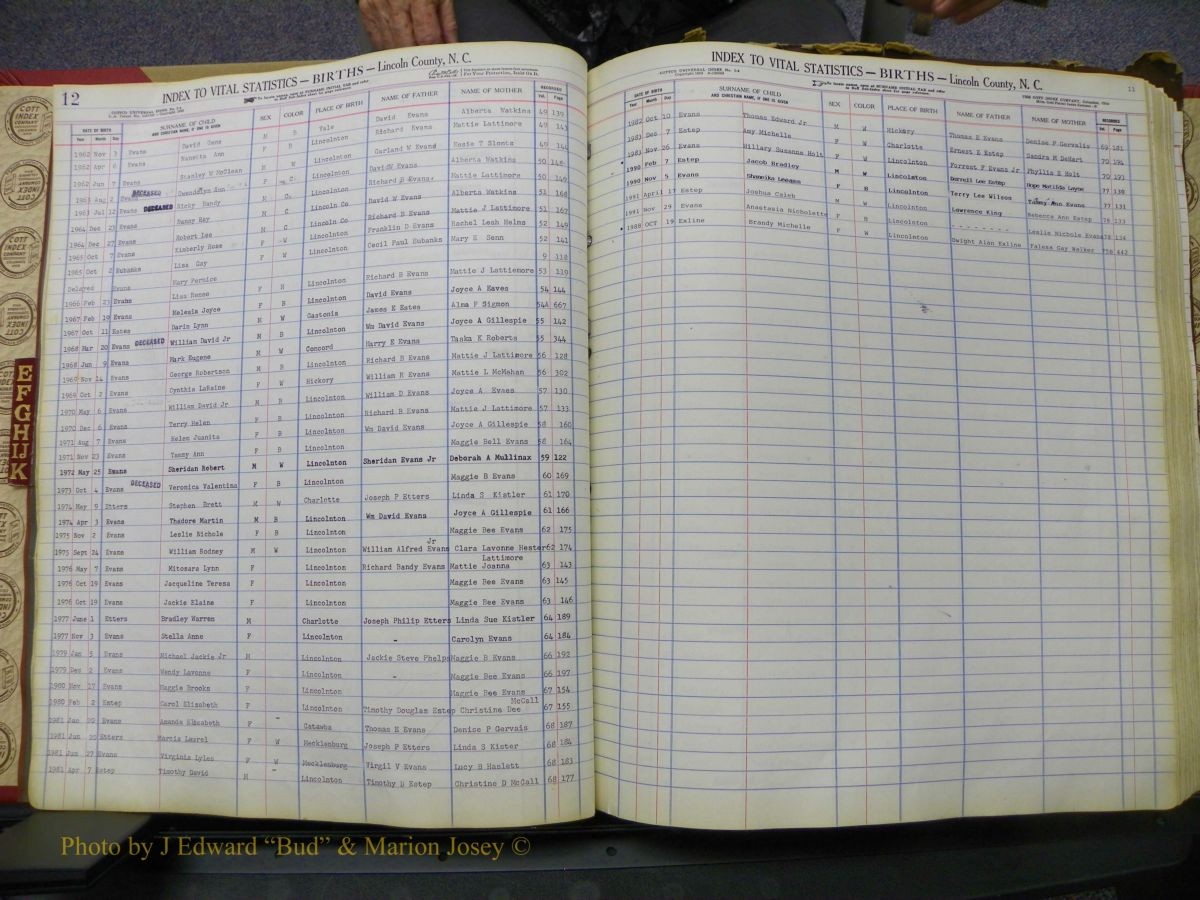 12
INDEX TO VITAL STATISTICS — BIRTHS — Lincoln County, N. C.
DATE OF BIRTH SURNAME OF CHILD SEX COLOR PLACE OF BIRTH NAME OF FATHER NAME OF MOTHER RECORDED
Year Month Day AND CHRISTIAN NAME, IF ONE IS GIVEN Vol. Page
1962 Nov 3 Evans David Gene M B Vale David Evans Alberta Watkins 49 139
1962 Apr 6 Evans Nanetta Ann F B Lincolnton Richard Evans Mattie Lattimore 49 143
1962 Jun 7 Evans Stanley W McClean M W Lincolnton Garland W Evans Essie T Slontz 49 144
1963 Aug 2 Evans DECEASED Gwendolyn Ann F Lincolnton David Evans Alberta Watkins 50 148
1963 Jul 12 Evans DECEASED Ricky Randy M Lincolnton Richard B Evans Mattie Lattimore 50 149
1964 Dec 23 Evans Danny Ray M C Lincoln Co David W Evans Alberta Watkins 51 168
1964 Dec 27 Evans Robert Lee M C Lincoln Co Richard B Evans Mattie J Lattimore 51 167
1965 Oct 7 Evans Kimberly Rose F W Lincolnton Franklin D Evans Rachel Leah Helms 52 149
1965 Oct 2 Eubanks Lisa Gay F W Lincolnton Cecil Paul Eubanks Mary E Senn 52 141
Delayed Evans Mary Fernice 9 118
1966 Feb 23 Evans Lisa Renee F N Lincolnton Richard B Evans Mattie J Lattimore 53 119
1967 Feb 19 Evans Melesia Joyce F B Lincolnton David Evans Joyce A Eaves 54 144
1967 Oct 11 Estes Darin Lynn M W Gastonia James E Estes Alma F Sigmon 54A 667
1968 Mar 20 Evans DECEASED William David Jr M B Lincolnton Wm David Evans Joyce A Gillespie 55 142
1968 Jun 9 Evans Mark Eugene M W Concord Harry E Evans Taska K Roberts 55 344
1969 Nov 14 Evans George Robertson M B Lincolnton Richard B Evans Mattie J Lattimore 56 128
1969 Oct 2 Evans Cynthia LaRaine F W Hickory William R Evans Mattie L McMahan 56 302
1970 May 6 Evans William David Jr M B Lincolnton William D Evans Joyce A Evaes 57 130
1970 Dec 6 Evans Terry Helen F B Lincolnton Richard B Evans Mattie J Lattimore 57 133
1971 Aug 7 Evans Helen Juanita F B Lincolnton Wm David Evans Joyce A Gillespie 58 160
1971 Nov 23 Evans Tammy Ann F B Lincolnton Maggie Bell Evans 58 164
1972 May 25 Evans Sheridan Robert M W Lincolnton Sheridan Evans Jr Deborah A Mullinax 59 122
1973 Oct 4 Evans DECEASED Veronica Valentina F B Lincolnton Maggie B Evans 60 169
1974 May 9 Etters Stephen Brett M W Charlotte Joseph P Etters Linda S Kistler 61 170
1974 Apr 3 Evans Thadore Martin M B Lincolnton Wm David Evans Joyce A Gillespie 61 166
1975 Nov 2 Evans Leslie Nichole F B Lincolnton Maggie Bee Evans 62 175
1975 Sept 24 Evans William Rodney M W Lincolnton William Alfred Evans Jr Clara Lavonne Hester 62 174
1976 May 7 Evans Mitosara Lynn F Lincolnton Richard Bandy Evans Mattie Joanna Lattimore 63 143
1976 Oct 19 Evans Jacqueline Teresa F Lincolnton Maggie Bee Evans 63 145
1976 Oct 19 Evans Jackie Elaine F Lincolnton Maggie Bee Evans 63 146
1977 June 1 Etters Bradley Warren M Charlotte Joseph Philip Etters Linda Sue Kistler 64 189
1977 Nov 3 Evans Stella Anne F Lincolnton - Carolyn Evans 64 184
1979 Jan 5 Evans Michael Jackie Jr M Lincolnton Jackie Steve Phelps Maggie B Evans 66 192
1979 Dec 2 Evans Wendy Lavonne F Lincolnton - Maggie Bee Evans 66 197
1980 Nov 17 Evans Maggie Brooks F Lincolnton Maggie Bee Evans 67 154
1980 Feb 2 Estep Carol Elizabeth F Lincolnton Timothy Douglas Estep Christine Dee McCall 67 155
1981 Jan 20 Evans Amanda Elizabeth F - Catawba Thomas E Evans Denise P Gervais 68 187
1981 Jun 20 Etters Marcia Laurel F W Mecklenburg Joseph P Etters Linda S Kister 68 184
1981 Jun 27 Evans Virginia Lyles F W Mecklenburg Virgil V Evans Lucy B Haslett 68 183
1981 Apr 7 Estep Timothy David M - Lincolnton Timothy D Estep Christine D McCall 68 177
E F G H I J K
COTT INDEX COMPANY
INDEX TO VITAL STATISTICS — BIRTHS — Lincoln County, N. C.
DATE OF BIRTH SURNAME OF CHILD SEX COLOR PLACE OF BIRTH NAME OF FATHER NAME OF MOTHER RECORDED
Year Month Day AND CHRISTIAN NAME, IF ONE IS GIVEN Vol. Page
1982 Oct 10 Evans Thomas Edward Jr M W Hickory Thomas E Evans Denise P Gervais 69 181
1983 Dec 7 Estep Amy Michelle F W Charlotte Ernest E Estep Sandra M DeHart 70 194
1983 Nov 26 Evans Hillary Susanna Holt F W Lincolnton Forrest F Evans Jr Phyllis E Holt 70 193
1990 Feb 7 Estep Jacob Bradley M W Lincolnton Darrell Lee Estep Hope Matilda Layne 77 138
1990 Nov 5 Evans Shameika Leeann F B Lincolnton Terry Lee Wilson Tammy Ann Evans 77 131
1991 April 17 Estep Joshua Caleb M W Lincolnton Lawrence King Rebecca Ann Estep 78 133
1991 Nov 29 Evans Anastasia Nicholette F B Lincolnton - - - - - - - - Leslie Nichole Evans 78 134
1988 OCT 19 Exline Brandy Michelle F W Lincolnton Dwight Alan Exline Talena Gay Walker 75A 442
Photo by J Edward “Bud” & Marion Josey ©